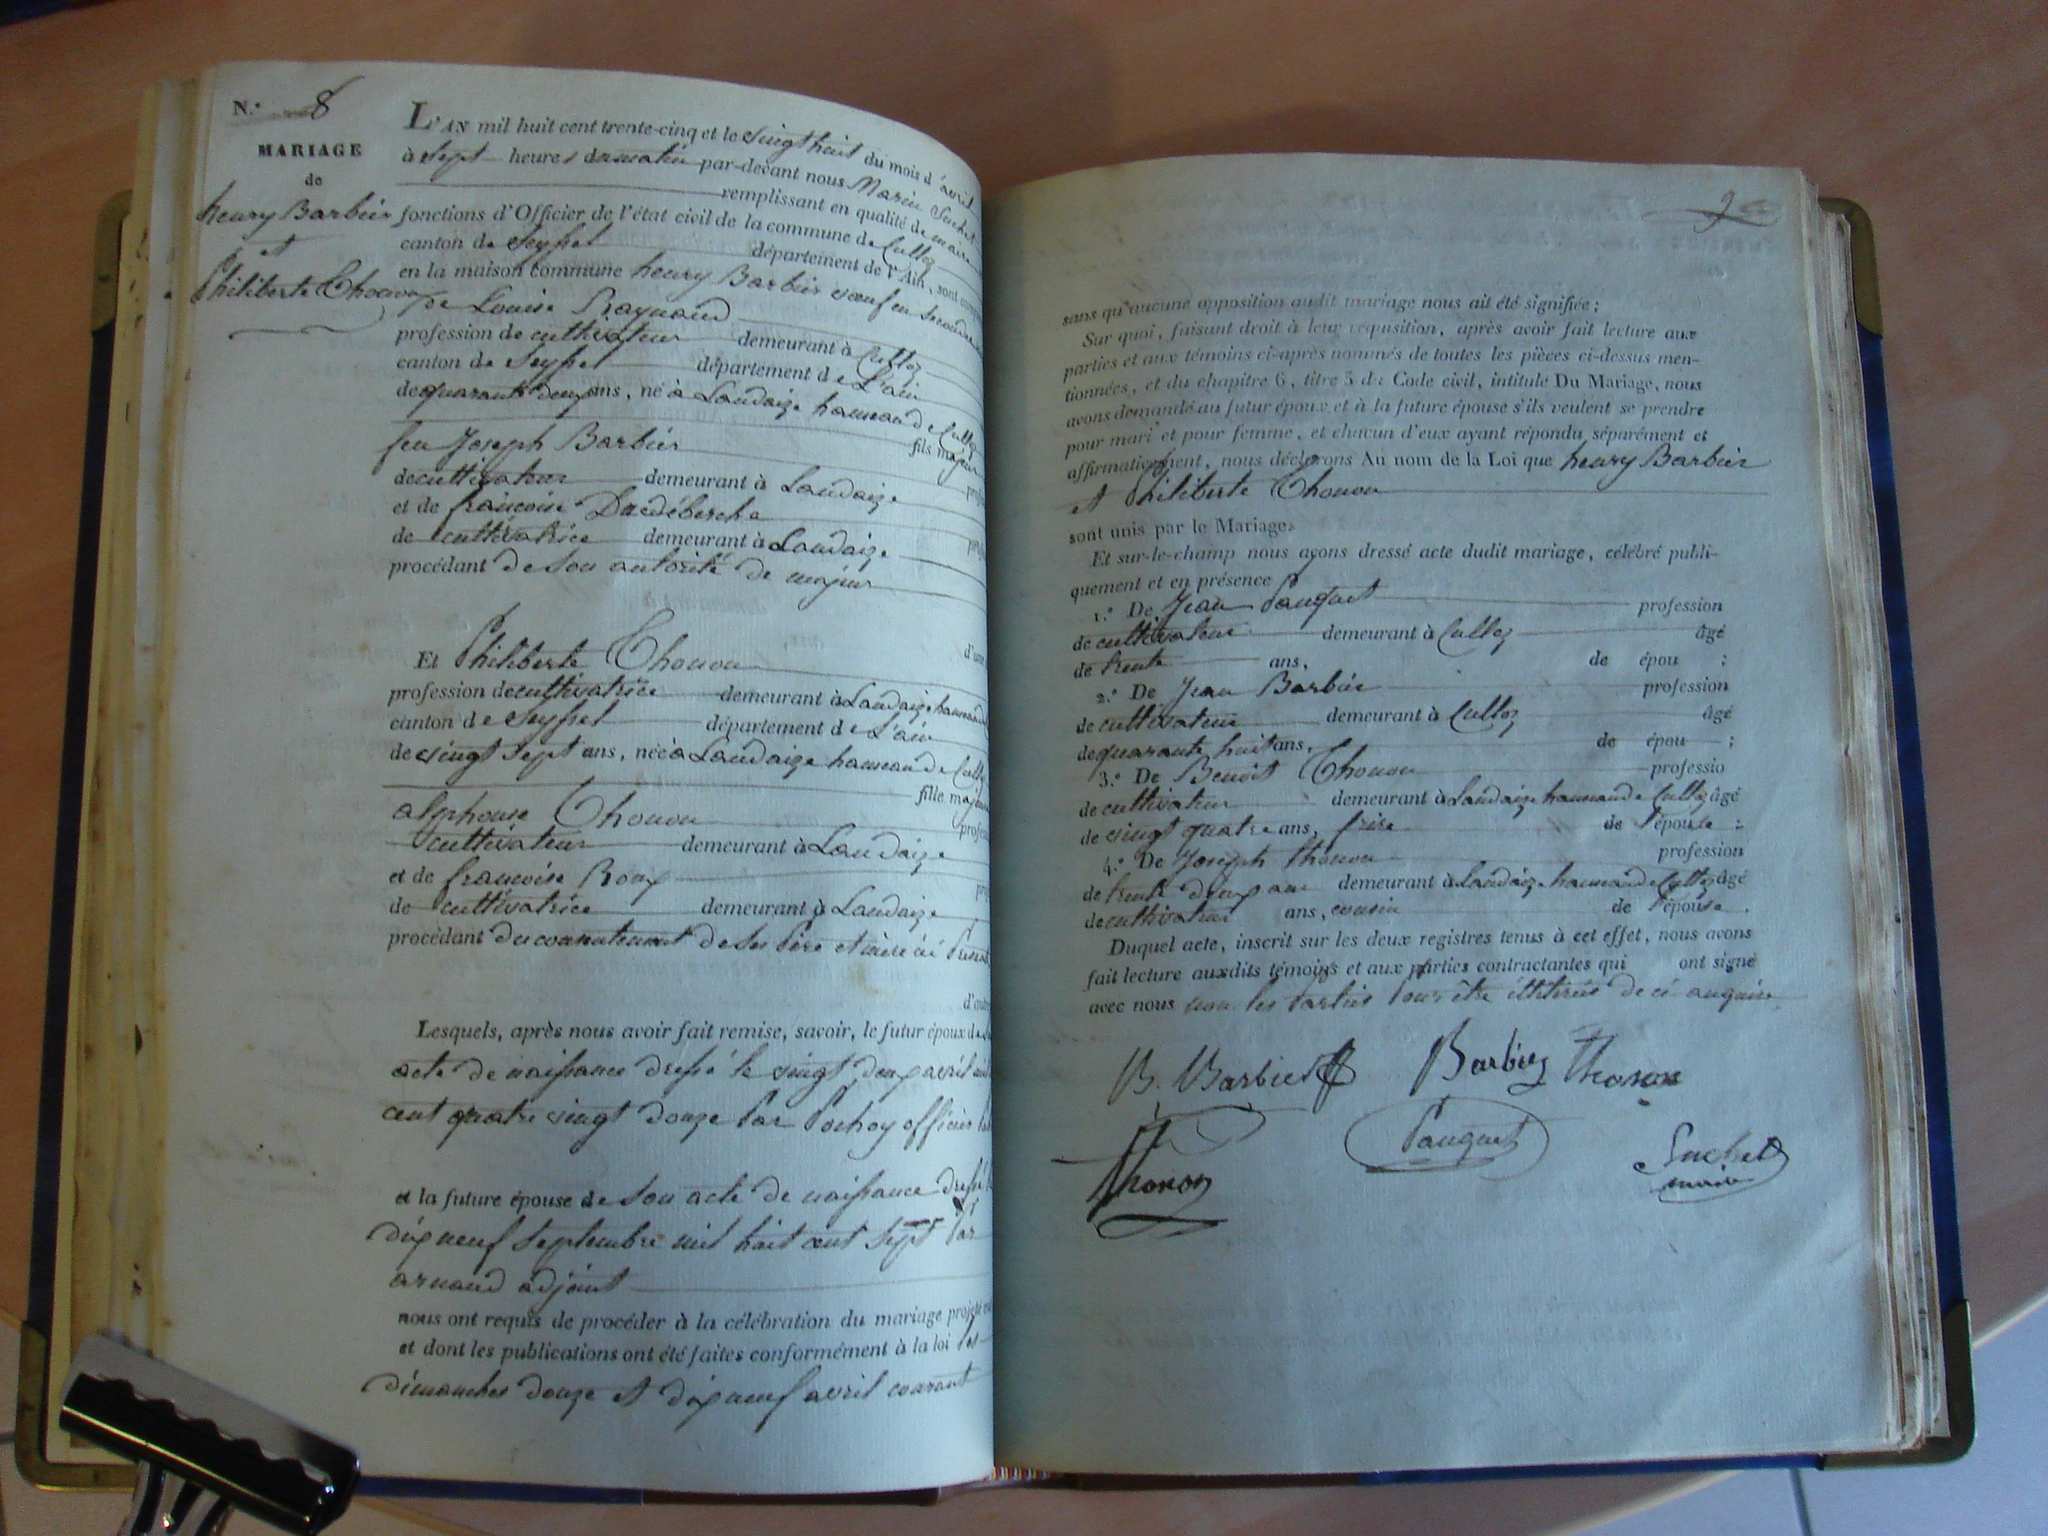 N.° 8
MARIAGE
de
henry Barbier
et
Philiberte Thonon
L'AN mil huit cent trente-cinq et le vingt huit du mois d'avril
à sept heures du matin par-devant nous Marin Suchet
remplissant en qualité de maire
fonctions d'Officier de l'état civil de la commune de Culloz
canton de Seyssel département de l'Ain, sont
en la maison commune henry Barbier veuf en secondes
de Louise Raynaud
profession de cultivateur demeurant à Culloz
canton de Seyssel département de L'ain
de quarante deux ans, né à Landaize hameau de Culloz
fils majeur
feu Joseph Barbier
de cultivateur demeurant à Landaize
et de francoise
de cultivatrice demeurant à Landaize
procédant de son autorité de majeur
Et Philiberte Thonon d'une
profession de cultivatrice demeurant à Landaize hameau
canton de Seyssel département de L'ain
de vingt sept ans, née à Landaize hameau de Culloz
fille majeure
alphonse Thonon
cultivateur demeurant à Landaize
et de francoise Roux
de cultivatrice demeurant à Landaize
procédant du consentement de ses père et mère ici
Lesquels, après nous avoir fait remise, savoir, le futur époux de
acte de naissance dressé le vingt deux avril
cent quatre vingt douze par Pochoy officier
et la future épouse de son acte de naissance dressé
dix neuf Septembre mil huit cent sept par
arnaud adjoint
nous ont requis de procéder à la célébration du mariage projeté
et dont les publications ont été faites conformément à la loi les
dimanches douze et dix neuf avril courant
9
sans qu'aucune opposition audit mariage nous ait été signifiée;
Sur quoi, faisant droit à leur réquisition, après avoir fait lecture aux
parties et aux témoins ci-après nommés de toutes les pièces ci-dessus men-
tionnées, et du chapitre 6, titre 5 du Code civil, intitulé Du Mariage, nous
avons demandé au futur époux et à la future épouse s'ils veulent se prendre
pour mari et pour femme, et chacun d'eux ayant répondu séparément et
affirmativement, nous déclarons Au nom de la Loi que henry Barbier
et Philiberte Thonon
sont unis par le Mariage.
Et sur-le-champ nous avons dressé acte dudit mariage, célébré publi-
quement et en présence
1.° De Jean Pauquet profession
de cultivateur demeurant à Culloz âgé
de trente ans, de épou ;
2.° De Jean Barbier profession
de cultivateur demeurant à Culloz âgé
de quarante huit ans, de épou ;
3.° De Benoît Thonon professio
de cultivateur demeurant à Landaize hameau de Culloz âgé
de vingt quatre ans, frère de l'épouse ;
4.° De Joseph Thonon profession
de trente deux ans demeurant à Landaize hameau de Culloz âgé
de cultivateur ans, cousin de l'épouse.
Duquel acte, inscrit sur les deux registres tenus à cet effet, nous avons
fait lecture auxdits témoins et aux parties contractantes qui ont signé
avec nous non les parties pour être illitérées de ci enquises
B. Barbier Barbier Thonon
Thonon Pauquet Suchet
maire